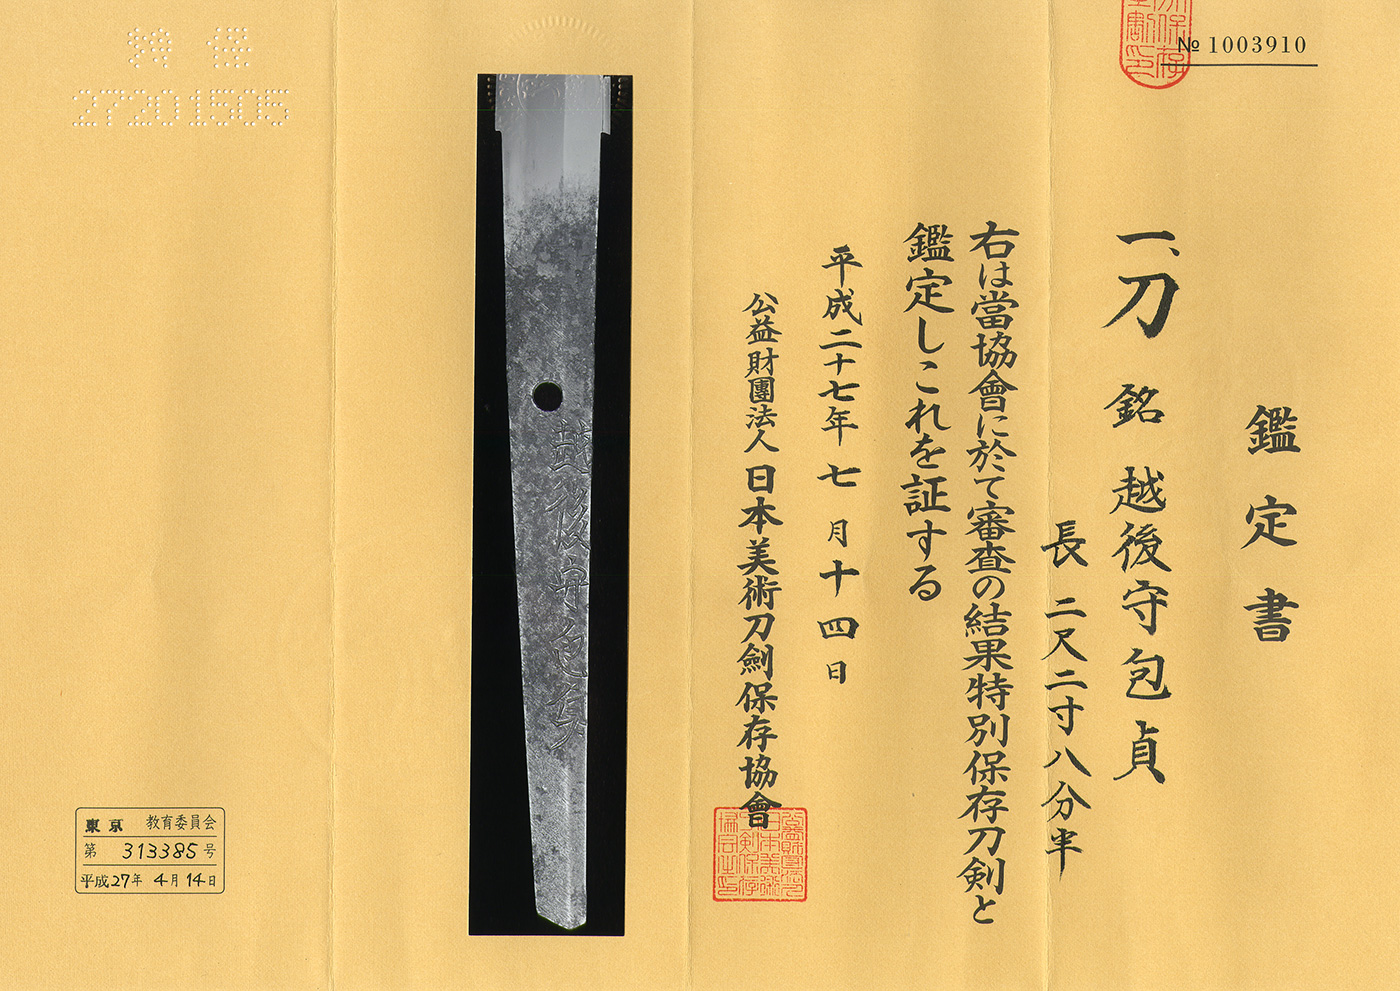 № 1003910
鑑定書
一、刀 銘 越後守包貞
長 二尺二寸八分半
右は當協會に於て審査の結果特別保存刀剣と
鑑定しこれを証する
平成二十七年七月十四日
公益財團法人日本美術刀劍保存協會
越後守包貞
27201505
東京 教育委員会
第 313385 号
平成27年 4月14日